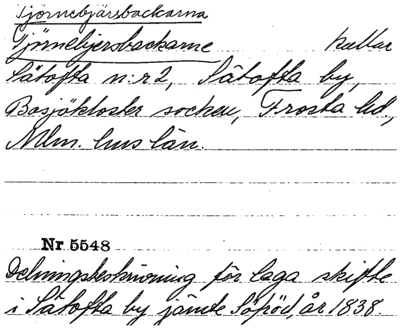 Tjörnebjärsbackarna
Tjörnebjersbackarne kallar
Sätofta n:r 2, Sätofta by,
Bosjökloster socken, Frosta hd,
Mlm. hus län.
Nr 5548
Delningsbeskrivning för laga skifte
i Sätofta by jämte Söröd, år 1838.